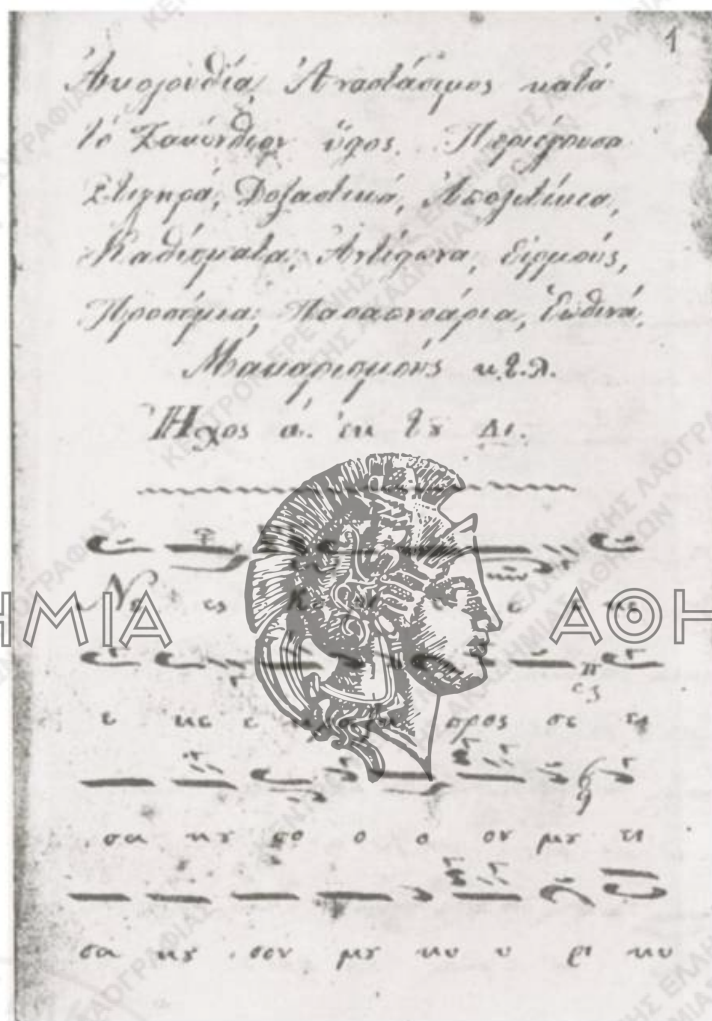 1
Ἀκολουθία Ἀναστάσιμος κατὰ
τὸ Ζακύνθιον ὕφος. Περιέχουσα
Στιχηρά, Δοξαστικά, Ἀπολυτίκια,
Καθίσματα, Ἀντίφωνα, Εἱρμούς,
Προσόμια, Πασαπνοάρια, Ἑωθινά,
Μακαρισμούς κ.τ.λ.
Ἦχος α. ἐκ τȣ Δι.
κε
ε κε ε προς σε ει
ΗΜΙΑ ΑΘΗ
σα κȣ σο ο ο ον μȣ ει
σα κȣ σον μȣ κυ υ ρι κυ